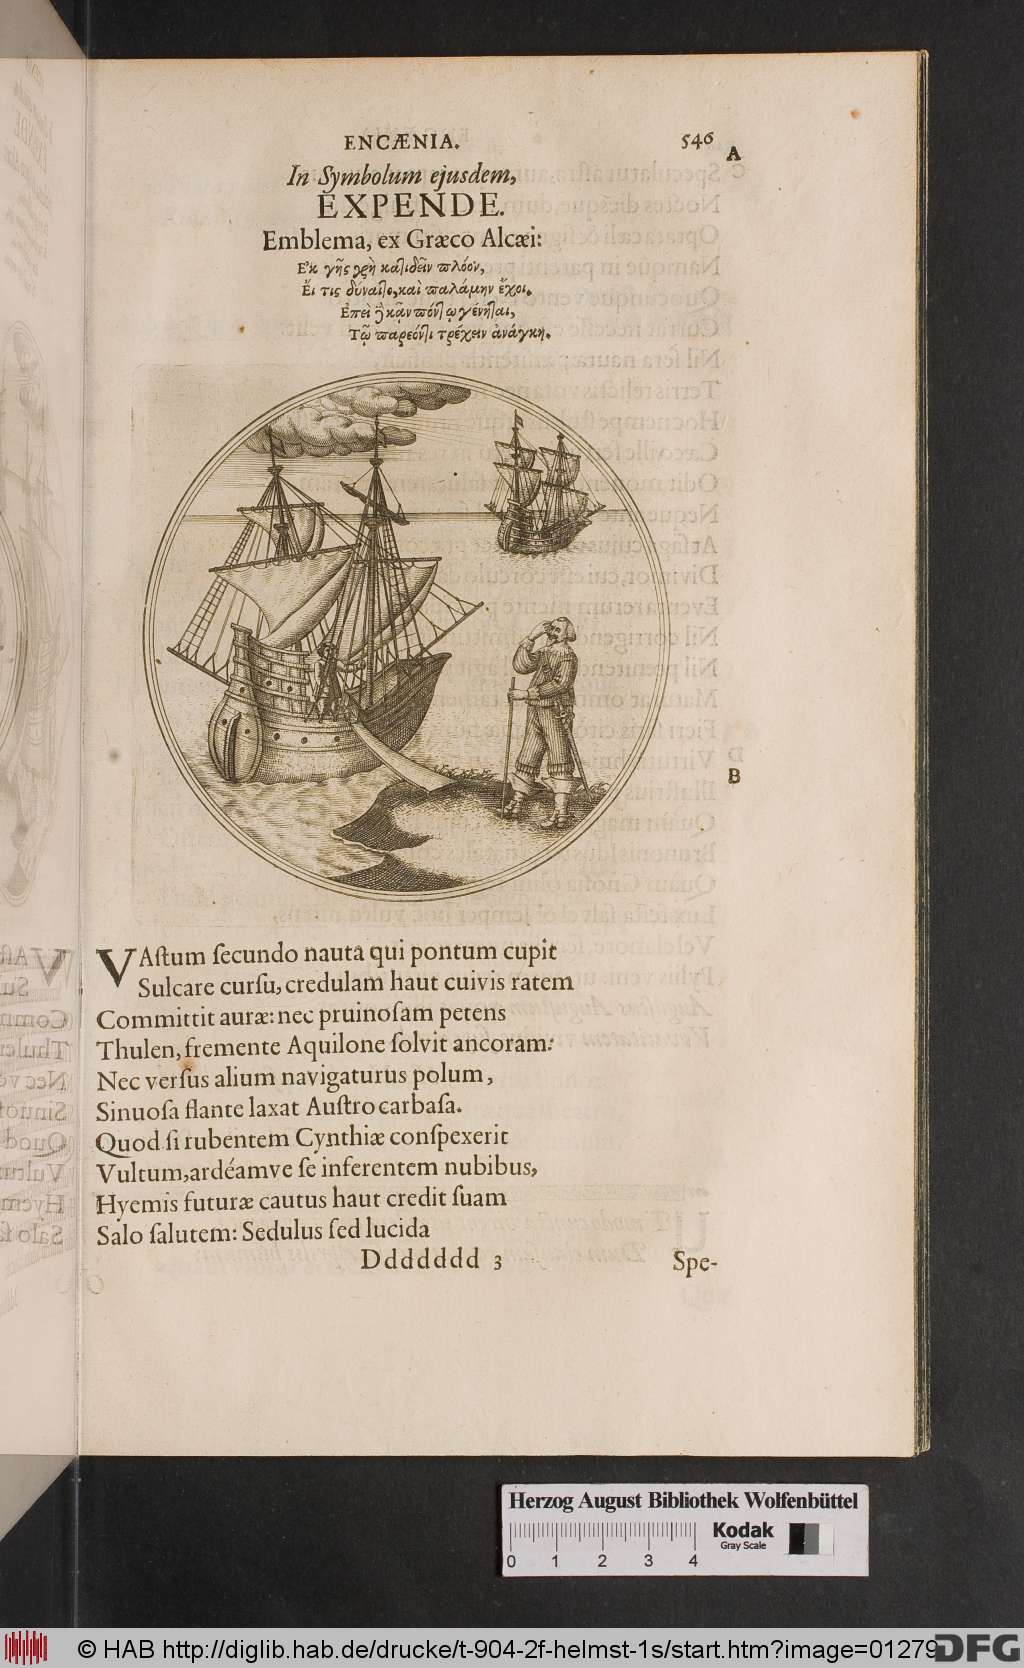 ENCÆNIA. 546
A
In Symbolum ejusdem,
EXPENDE.
Emblema, ex Græco Alcæi:
Ἐκ γῆς χρὴ κατιδεῖν πλόον,
Εἴ τις δύναιτο, καὶ παλάμην ἔχοι.
Ἐπεὶ δὲ κᾂν πόντῳ γένηται,
Τῷ παρεόντι τρέχειν ἀνάγκη.
B
VAſtum ſecundo nauta qui pontum cupit
Sulcare curſu, credulam haut cuivis ratem
Committit auræ: nec pruinoſam petens
Thulen, fremente Aquilone ſolvit ancoram:
Nec verſus alium navigaturus polum,
Sinuoſa flante laxat Auſtro carbaſa.
Quod ſi rubentem Cynthiæ conſpexerit
Vultum, ardéamve ſe inferentem nubibus,
Hyemis futuræ cautus haut credit ſuam
Salo ſalutem: Sedulus ſed lucida
Ddddddd 3 Spe-
Herzog August Bibliothek Wolfenbüttel
0 1 2 3 4
Kodak
Gray Scale
© HAB http://diglib.hab.de/drucke/t-904-2f-helmst-1s/start.htm?image=01279
DFG